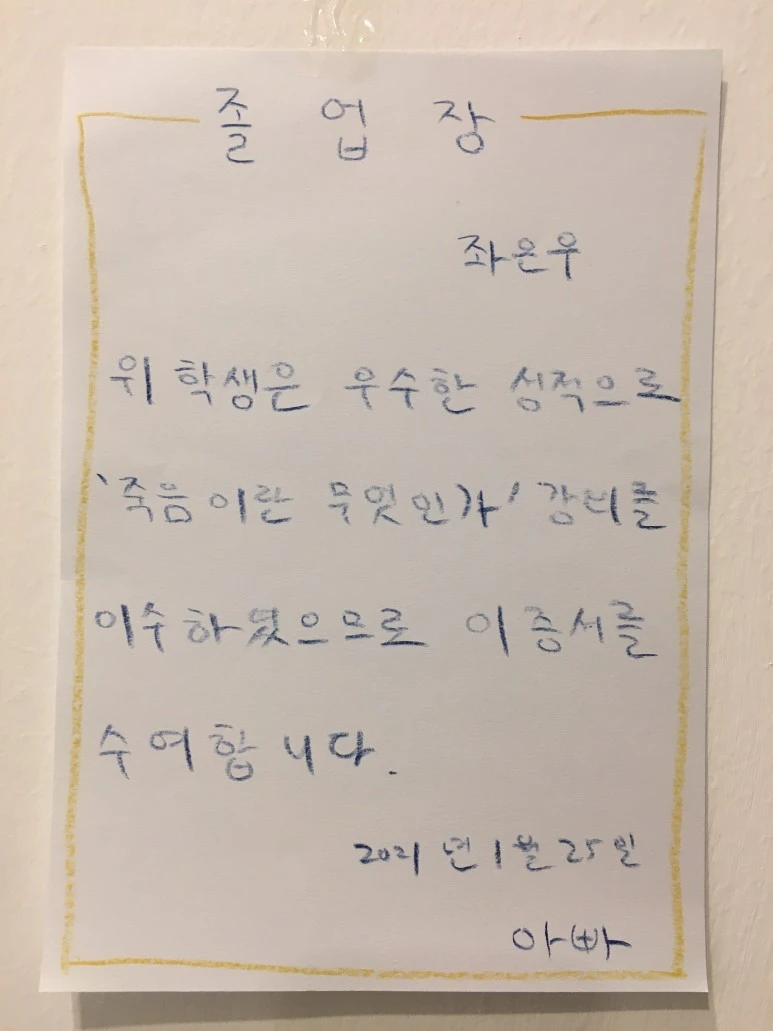 졸 업 장
좌은우
위 학생은 우수한 성적으로
'죽음이란 무엇인가' 강의를
이수하였으므로 이 증서를
수여합니다.
2021년 1월 25일
아빠